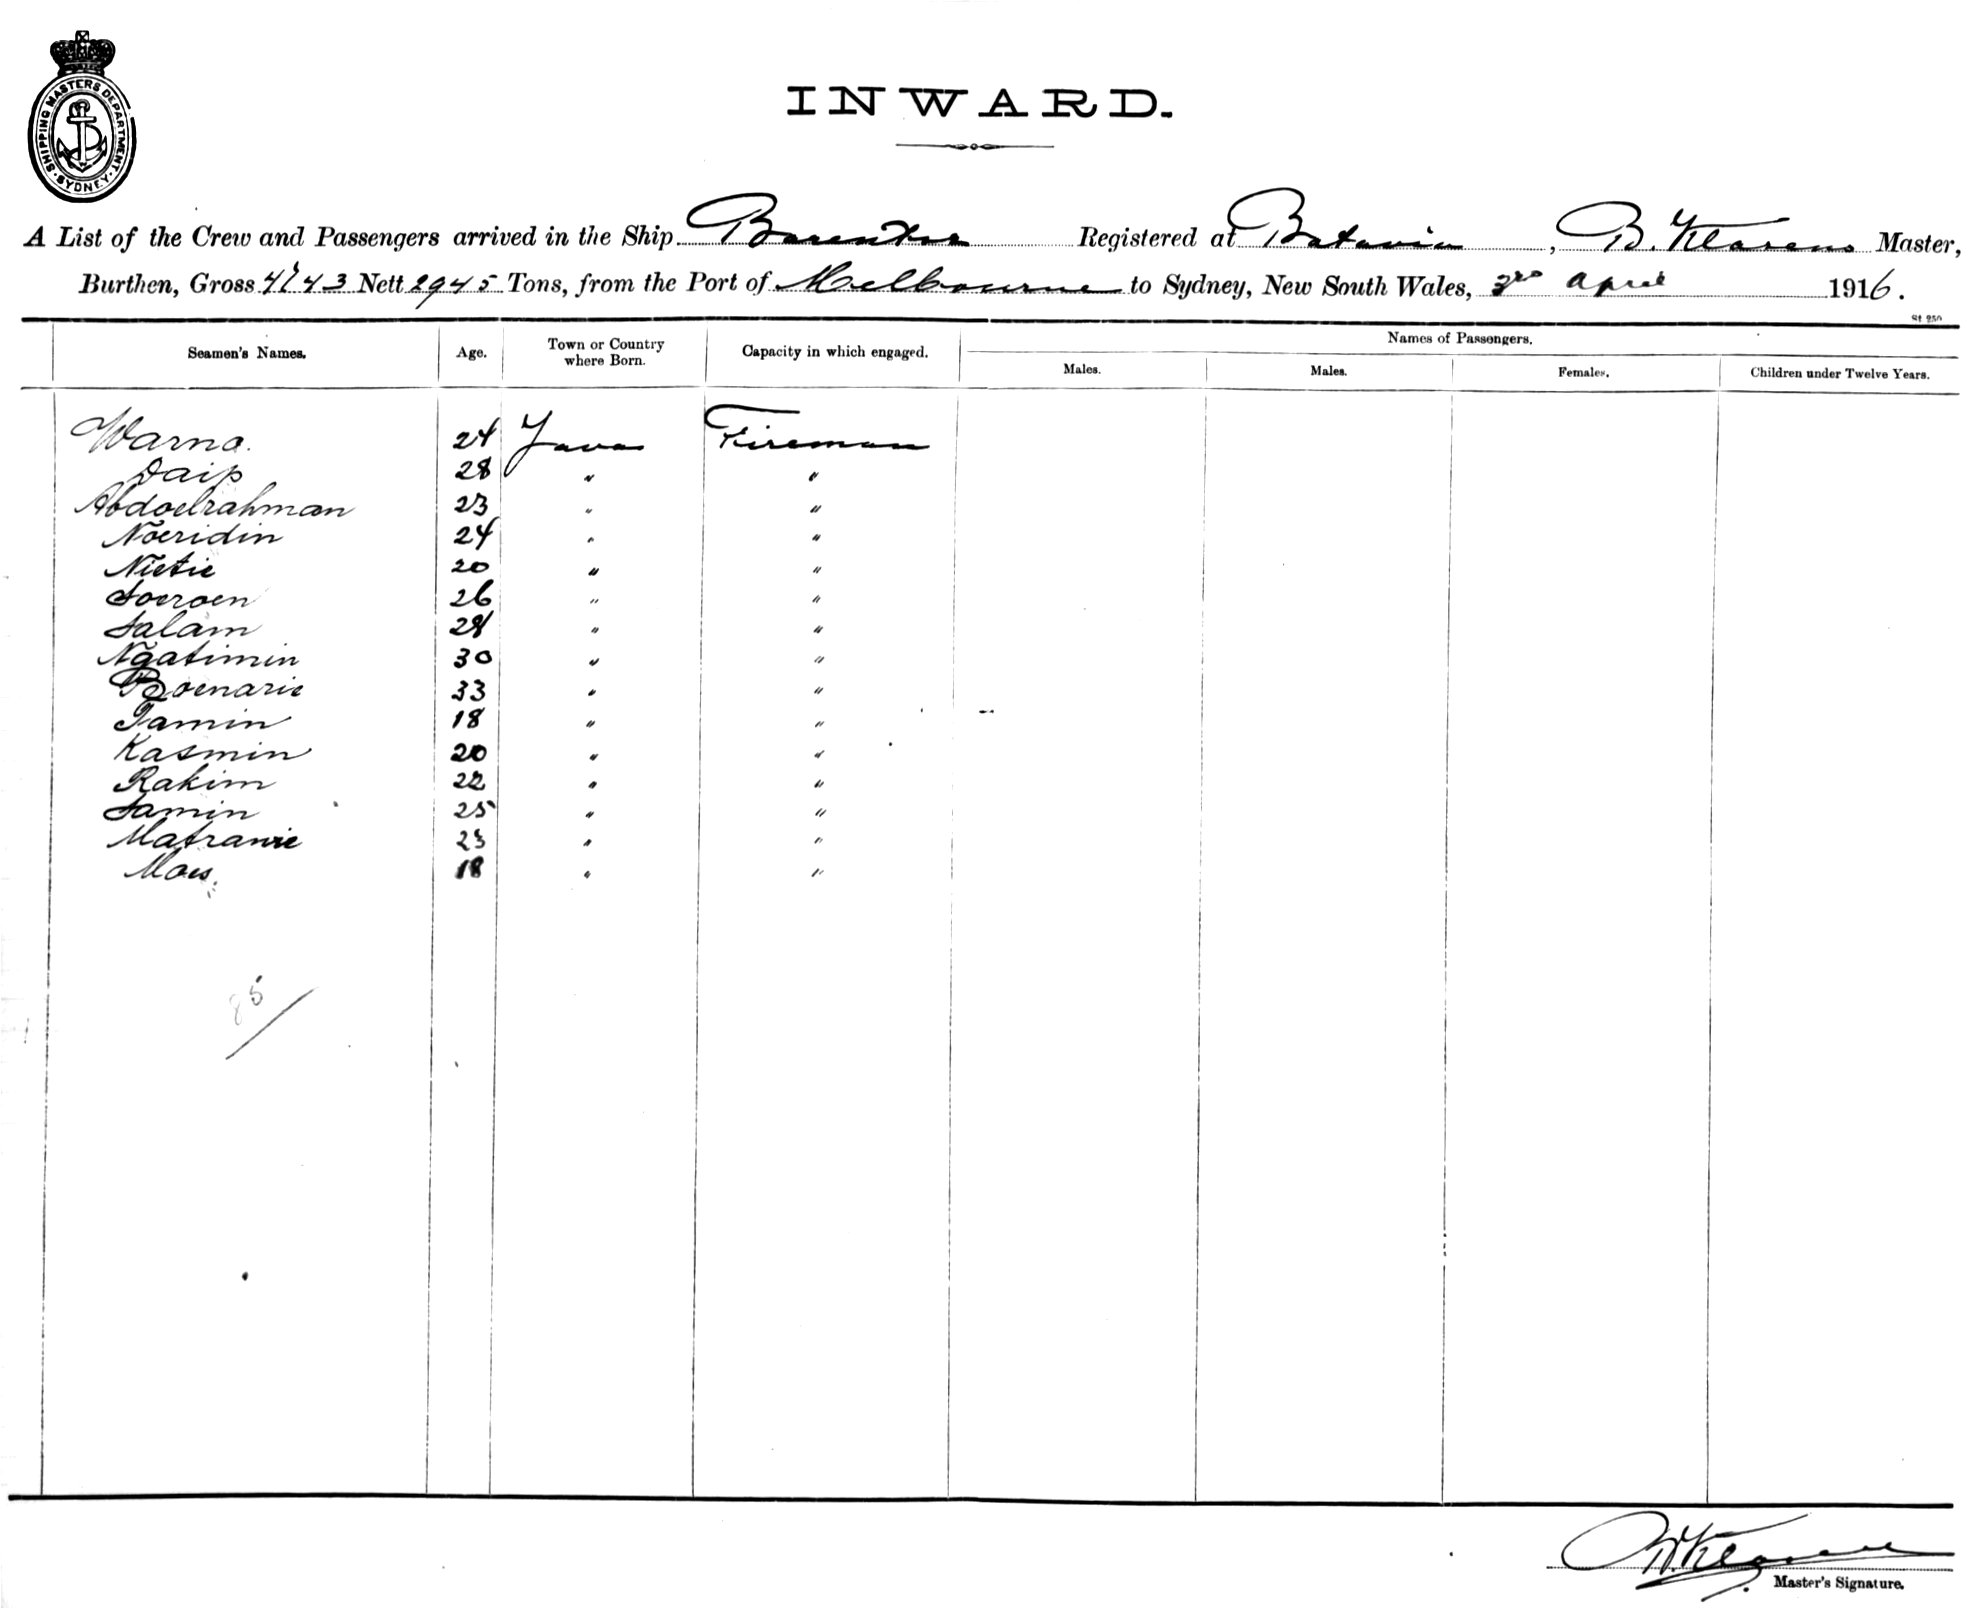 SHIPPING MASTERS DEPARTMENT. SYDNEY.
INWARD.
A List of the Crew and Passengers arrived in the Ship Barentsz Registered at Batavia, B. Klarens Master,
Burthen, Gross 4743 Nett 2945 Tons, from the Port of Melbourne to Sydney, New South Wales, 3rd April 1916.
St 250
Seamen's Names. Age. Town or Country where Born. Capacity in which engaged. Names of Passengers.
Males. Males. Females. Children under Twelve Years.
Warno. 24 Java Fireman
Daip 28 " "
Abdoelrahman 23 " "
Noeridin 24 " "
Nietie 20 " "
Soeroen 26 " "
Salam 28 " "
Ngatimin 30 " "
Boenarie 33 " "
Tamin 18 " "
Kasmin 20 " "
Rakim 22 " "
Samin 25 " "
Matranie 23 " "
Moes. 18 " "
85
B. Klarens
Master's Signature.